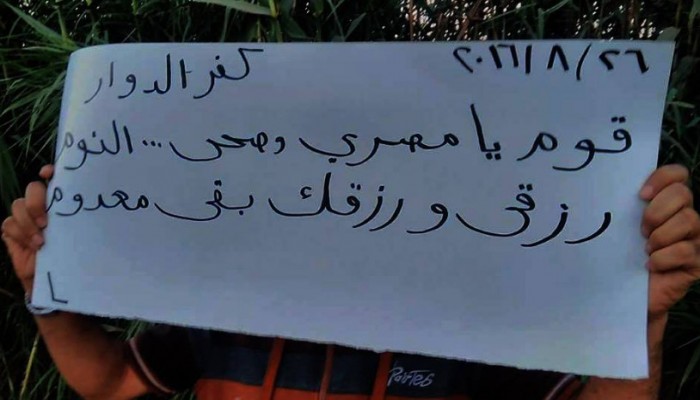 ٢٠١٦/٨/٢٦ كفر الدوار
قوم يا مصري وصحى ... النوم
رزقى و رزقك بقى معدوم
L